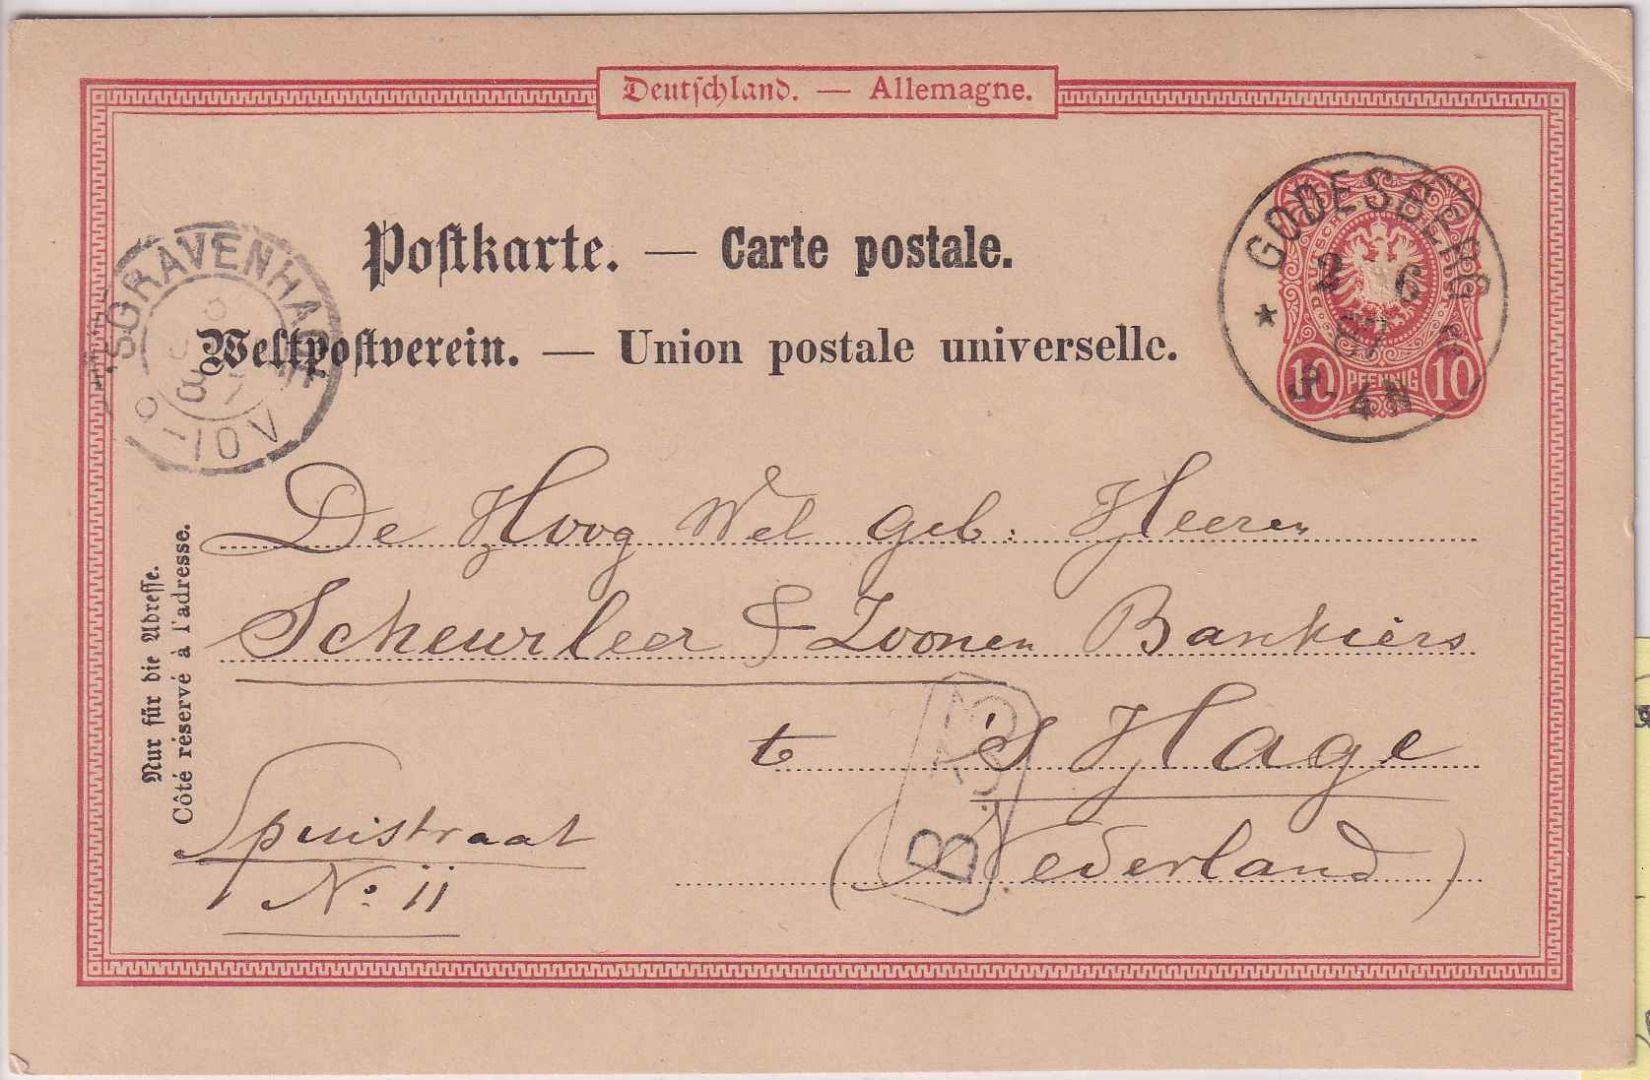 Deutschland. — Allemagne.
Postkarte. — Carte postale.
Weltpostverein. — Union postale universelle.
GODESBERG
2 6
87
3-4N
10 PFENNIG 10
'SGRAVENHAGE
10V
De Hoog Wel Geb: Heeren
Scheurleer & Zoonen Bankiers
te 's Hage
(Nederland)
Spuistraat
No. 11
Nur für die Adresse.
Côté réservé à l'adresse.